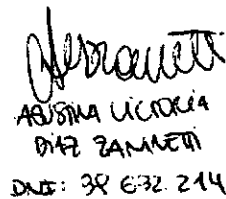 AGUSTINA VICTORIA
DIAZ ZANNETTI
DNI: 38 632 214